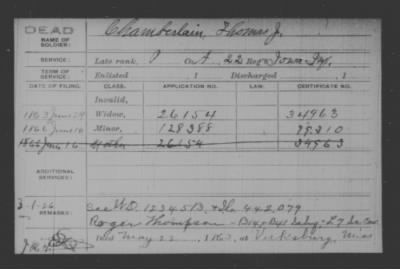 DEAD
NAME OF SOLDIER: Chamberlain, Thomas J.
SERVICE: Late rank, P Co. A, 22 Reg't Iowa Inf.
TERM OF SERVICE: Enlisted , 1 Discharged , 1
DATE OF FILING. CLASS. APPLICATION NO. LAW. CERTIFICATE NO.
Invalid,
1863 Widow, 26154 34963
June 16 Minor, 128388 78310
June 16 26154 34963
ADDITIONAL SERVICES:
3-1-26
REMARKS: See W.O. 1234513, & 442,079
Roger Thompson
Died May 22, 1863, at Vicksburg, Miss